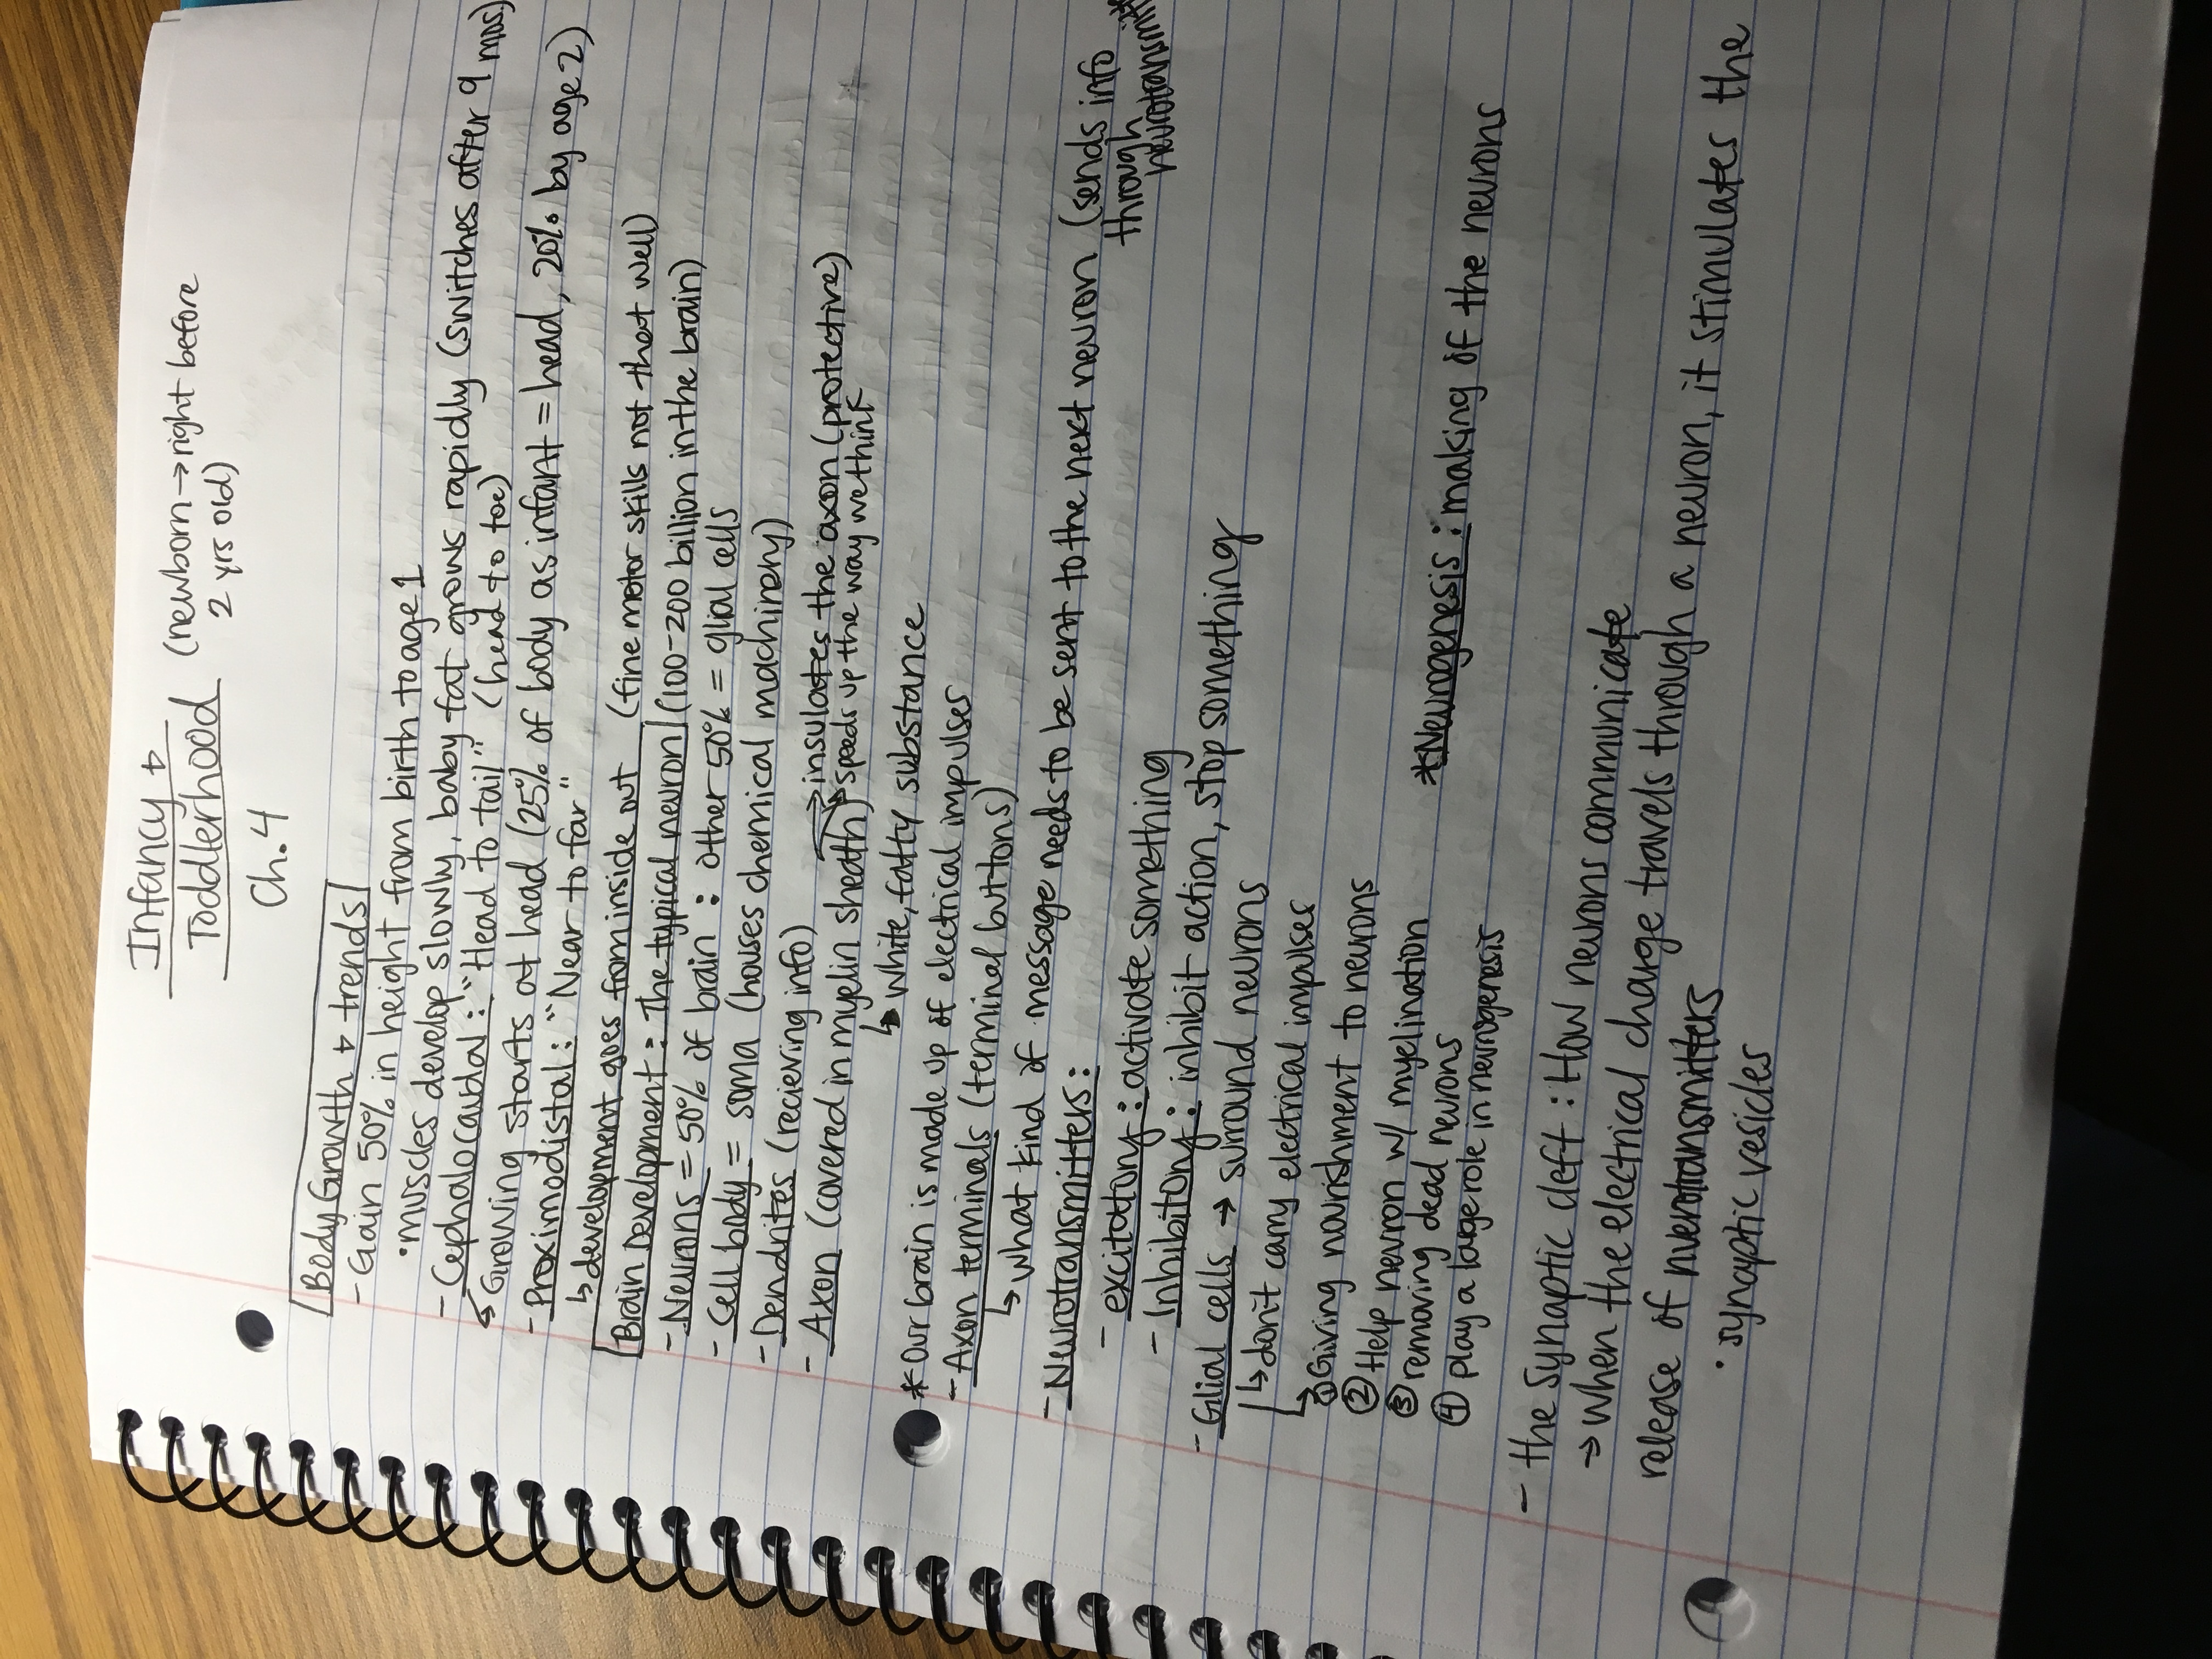 Infancy +
Toddlerhood (newborn → right before
2 yrs old)
Ch. 4
Body Growth + trends
- Gain 50% in height from birth to age 1
• muscles develop slowly, baby fat grows rapidly (switches after 9 mos)
- Cephalocaudal: "Head to tail" (head to toe)
↳ Growing starts at head (25% of body as infant = head, 20% by age 2)
- Proximodistal: "Near to far"
↳ development goes from inside out (fine motor skills not that well)
Brain Development: The typical neuron (100-200 billion in the brain)
- Neurons = 50% of brain : other 50% = glial cells
- Cell body = soma (houses chemical machinery)
- Dendrites (recieving info)
- Axon (covered in myelin sheath) → insulates the axon (protective)
→ speeds up the way we think
↳ white, fatty substance
* Our brain is made up of electrical impulses
- Axon terminals (terminal buttons)
↳ what kind of message needs to be sent to the next neuron (sends info
through
- Neurotransmitters:
- excitatory: activate something
- Inhibitory: inhibit action, stop something
- Glial cells → surround neurons
↳ don't carry electrical impulses
↳ ① Giving nourishment to neurons
② Help neuron w/ myelination
③ removing dead neurons
④ play a large role in neurogenesis
*Neurogenesis: making of the neurons
- the Synaptic cleft: How neurons communicate
→ when the electrical charge travels through a neuron, it stimulates the
release of nuerotransmitters
• synaptic vesicles